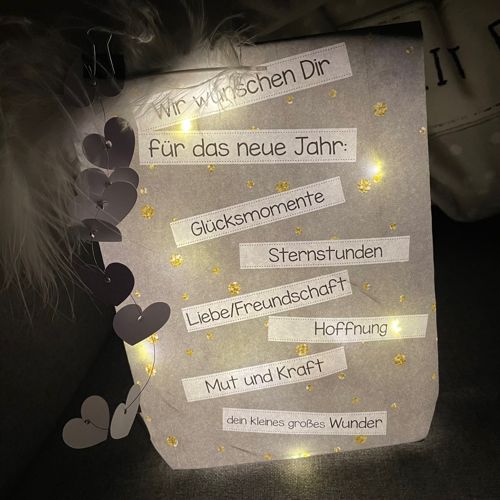 Wir wünschen Dir
für das neue Jahr:
Glücksmomente
Sternstunden
Liebe/Freundschaft
Hoffnung
Mut und Kraft
dein kleines großes Wunder